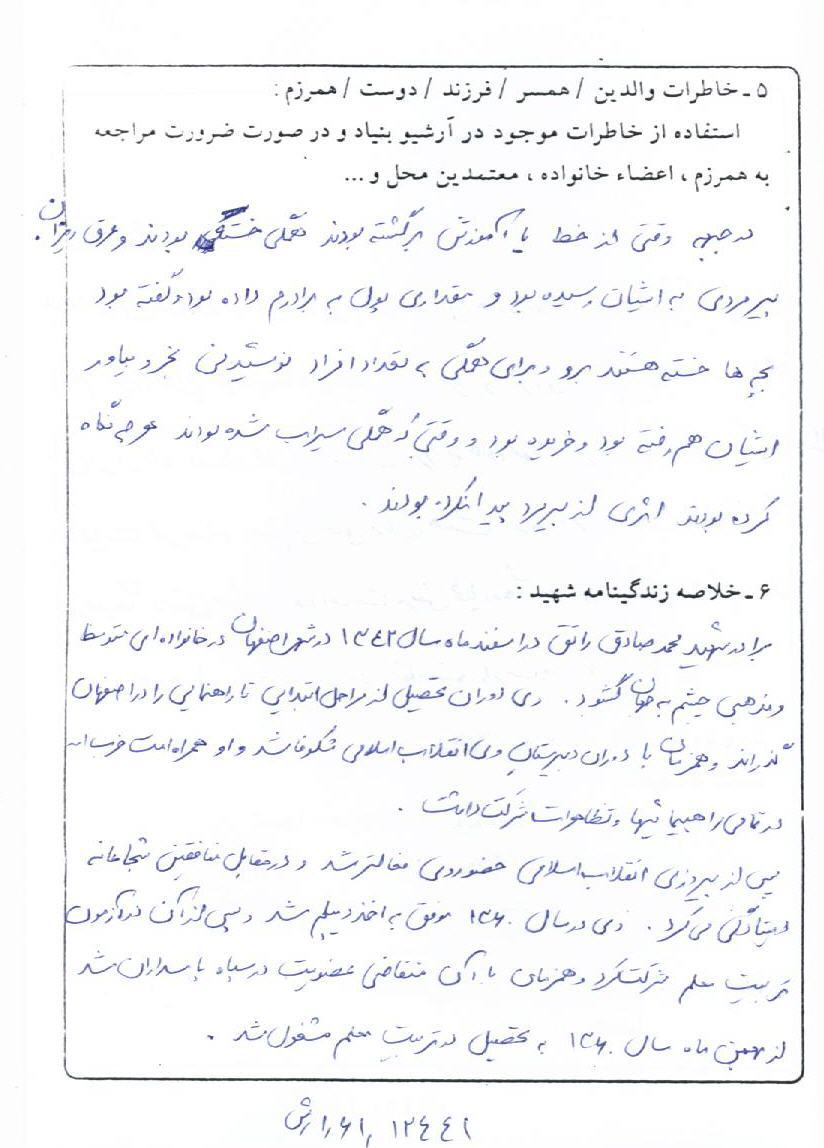 ۵ ـ خاطرات والدین / همسر / فرزند / دوست / همرزم :
استفاده از خاطرات موجود در آرشیو بنیاد و در صورت ضرورت مراجعه
به همرزم ، اعضاء خانواده ، معتمدین محل و ...
در جبهه وقتی از خط یا آموزش برگشته بودند همگی خستگی بودند و عرق ریزان .
پیرمردی به ایشان رسیده بود و مقداری پول به برادرم داده بود و گفته بود
بچه ها خسته هستند برو و برای همگی به تعداد افراد نوشیدنی بخر و بیاور
ایشان هم رفته بود و خریده بود و وقتی که همگی سیراب شده بودند هر چه نگاه
کرده بودند اثری از پیرمرد پیدا نکرده بودند .
۶ ـ خلاصه زندگینامه شهید :
برادر شهید محمد صادق راثق در اسفند ماه سال ۱۳۴۲ در شهر اصفهان در خانواده ای متوسط
و مذهبی چشم به جهان گشود . وی دوران تحصیل از مراحل ابتدایی تا راهنمایی را در اصفهان
گذراند و همزمان با دوران دبیرستان وی انقلاب اسلامی شکوفا شد و او همراه امت حزب الله
در تمامی راهپیمائیها و تظاهرات شرکت داشت .
پس از پیروزی انقلاب اسلامی حضور وی فعالتر شد و در مقابل منافقین شجاعانه
ایستادگی می کرد . وی در سال ۱۳۶۰ موفق به اخذ دیپلم شد و پس از آن در آزمون
تربیت معلم شرکت کرد و همزمان با آن متقاضی عضویت در سپاه پاسداران شد
از بهمن ماه سال ۱۳۶۰ به تحصیل در تربیت معلم مشغول شد .